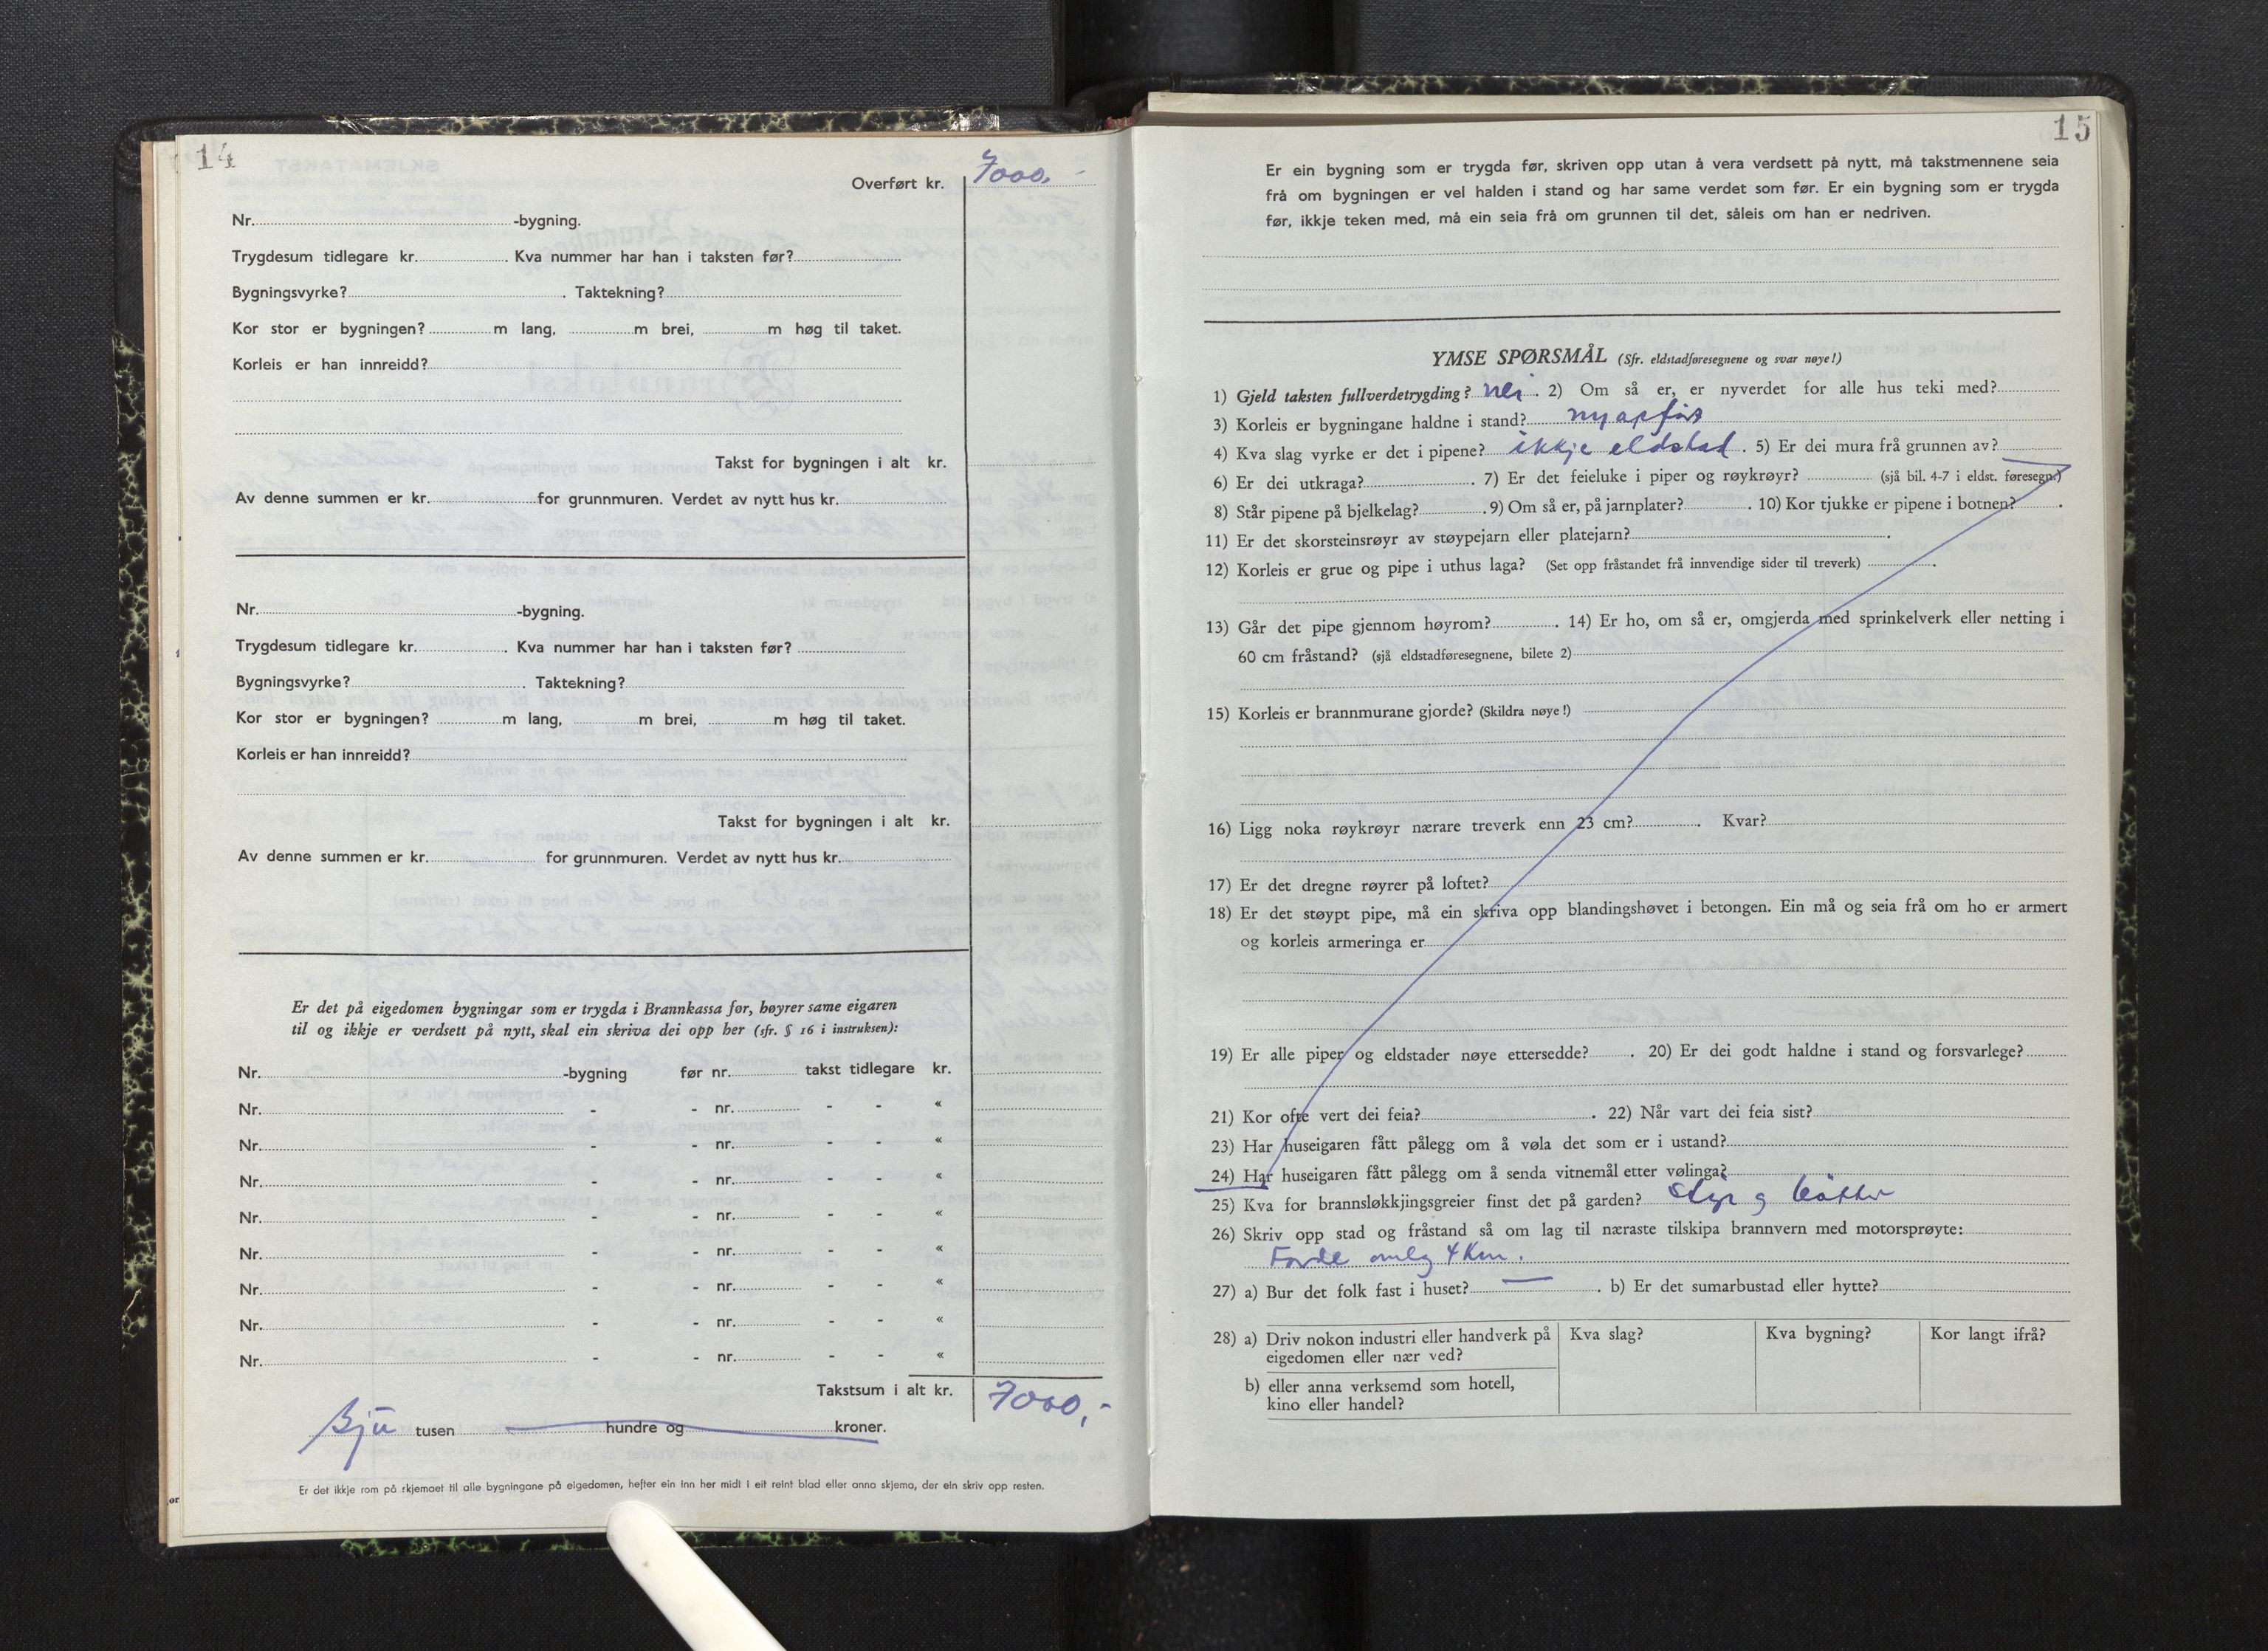 14
Overført kr. 7000,-
Nr. -bygning.
Trygdesum tidlegare kr. . Kva nummer har han i taksten før?
Bygningsvyrke? . Taktekning?
Kor stor er bygningen? m lang, m brei, m høg til taket.
Korleis er han innreidd?
Takst for bygningen i alt kr.
Av denne summen er kr. for grunnmuren. Verdet av nytt hus kr.
Nr. -bygning.
Trygdesum tidlegare kr. . Kva nummer har han i taksten før?
Bygningsvyrke? . Taktekning?
Kor stor er bygningen? m lang, m brei, m høg til taket.
Korleis er han innreidd?
Takst for bygningen i alt kr.
Av denne summen er kr. for grunnmuren. Verdet av nytt hus kr.
Er det på eigedomen bygningar som er trygda i Brannkassa før, høyrer same eigaren
til og ikkje er verdsett på nytt, skal ein skriva dei opp her (sfr. § 16 i instruksen):
Nr. -bygning før nr. takst tidlegare kr.
Nr. - - nr. - - «
Nr. - - nr. - - «
Nr. - - nr. - - «
Nr. - - nr. - - «
Nr. - - nr. - - «
Nr. - - nr. - - «
Nr. - - nr. - - «
Nr. - - nr. - - «
Takstsum i alt kr. 7000,-
Sju tusen hundre og kroner.
Er det ikkje rom på skjemaet til alle bygningane på eigedomen, hefter ein inn her midt i eit reint blad eller anna skjema, der ein skriv opp resten.
or
15
Er ein bygning som er trygda før, skriven opp utan å vera verdsett på nytt, må takstmennene seia
frå om bygningen er vel halden i stand og har same verdet som før. Er ein bygning som er trygda
før, ikkje teken med, må ein seia frå om grunnen til det, såleis om han er nedriven.
YMSE SPØRSMÅL (Sfr. eldstadføresegnene og svar nøye!)
1) Gjeld taksten fullverdetrygding? nei . 2) Om så er, er nyverdet for alle hus teki med?
3) Korleis er bygningane haldne i stand?
4) Kva slag vyrke er det i pipene? ikkje eldstad . 5) Er dei mura frå grunnen av?
6) Er dei utkraga? . 7) Er det feieluke i piper og røykrøyr? (sjå bil. 4-7 i eldst. føresegn.)
8) Står pipene på bjelkelag? . 9) Om så er, på jarnplater? . 10) Kor tjukke er pipene i botnen? .
11) Er det skorsteinsrøyr av støypejarn eller platejarn? .
12) Korleis er grue og pipe i uthus laga? (Set opp fråstandet frå innvendige sider til treverk) .
13) Går det pipe gjennom høyrom? . 14) Er ho, om så er, omgjerda med sprinkelverk eller netting i
60 cm fråstand? (sjå eldstadføresegnene, bilete 2)
15) Korleis er brannmurane gjorde? (Skildra nøye!)
16) Ligg noka røykrøyr nærare treverk enn 23 cm? . Kvar?
17) Er det dregne røyrer på loftet?
18) Er det støypt pipe, må ein skriva opp blandingshøvet i betongen. Ein må og seia frå om ho er armert
og korleis armeringa er
19) Er alle piper og eldstader nøye ettersedde? . 20) Er dei godt haldne i stand og forsvarlege?
21) Kor ofte vert dei feia? . 22) Når vart dei feia sist?
23) Har huseigaren fått pålegg om å vøla det som er i ustand?
24) Har huseigaren fått pålegg om å senda vitnemål etter vølinga?
25) Kva for brannsløkkjingsgreier finst det på garden? og bøtter
26) Skriv opp stad og fråstand så om lag til næraste tilskipa brannvern med motorsprøyte:
Førde omlag 4 Km.
27) a) Bur det folk fast i huset? — . b) Er det sumarbustad eller hytte?
28) a) Driv nokon industri eller handverk på eigedomen eller nær ved? Kva slag? Kva bygning? Kor langt ifrå?
b) eller anna verksemd som hotell,
kino eller handel?